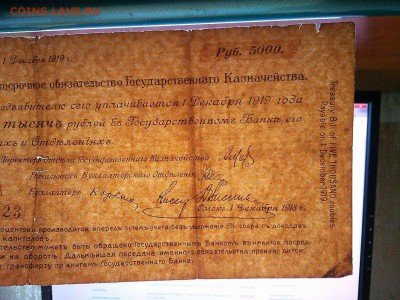 COINS.LAVE.RU
1 Декабря 1919 г.
Руб. 5000.
осрочное обязательство Государственнаго Казначейства.
едъявителю сего уплачивается 1 Декабря 1919 года
тысячъ рублей въ Государственномъ Банкѣ, его
хъ и Отдѣленiяхъ.
Директоръ Отдѣла Государственнаго Казначейства
Начальникъ Бухгалтерскаго Отдѣленiя
Бухгалтеръ
Омскъ, 1 Декабря 1918 г.
23
роцентовъ производится впередъ путемъ учета безъ удержанiя 5% сбора съ доходовъ
капиталовъ.
тельство можетъ быть обращено Государственнымъ Банкомъ въ именное посред
и на оборотѣ. Дальнѣйшая передача именного обязательства производится
трансферту по книгамъ Государственнаго Банка.
Treasury Bill of FIVE THOUSAND roubles.
Payable on 1 December 1919.